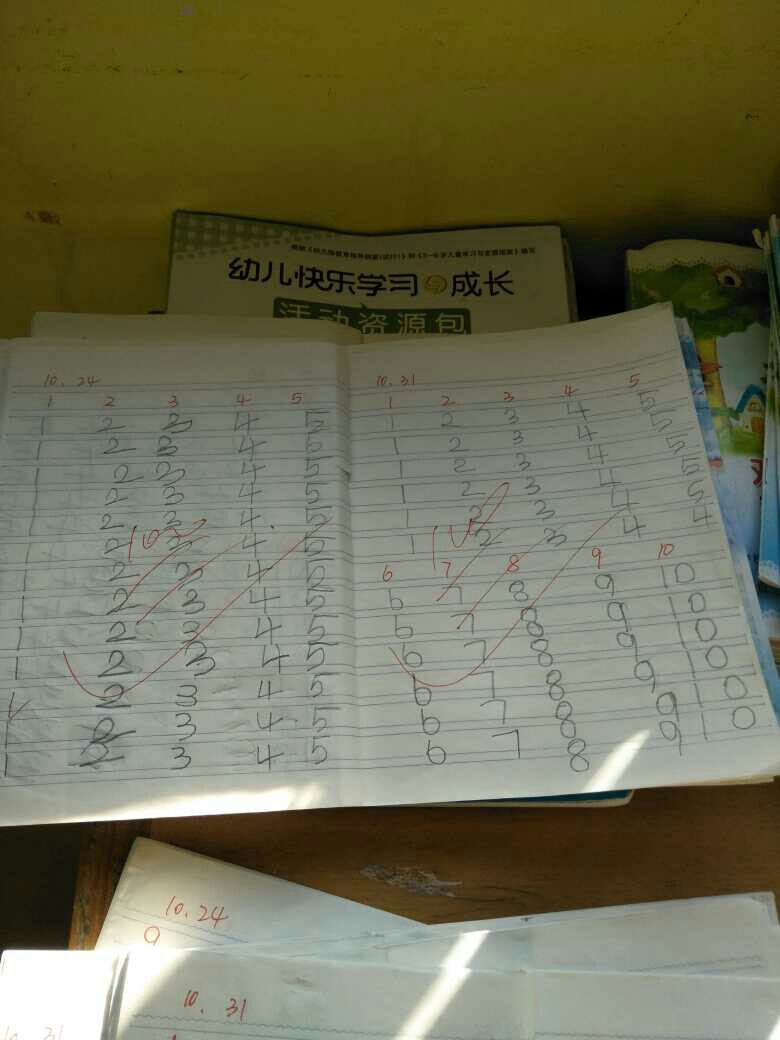 根据《幼儿园教育指导纲要(试行)》和《3-6岁儿童学习与发展指南》编写
幼儿快乐学习与成长
活动资源包
10.24
1 2 3 4 5
1 2 3 4 5
1 2 3 4 5
1 2 3 4 5
1 2 3 4 5
1 2 3 4 5
1 2 3 4 5
1 2 3 4 5
1 2 3 4 5
1 2 3 4 5
1 2 3 4 5
1 2 3 4 5
1 2 3 4 5
1 2 3 4 5
10.31
1 2 3 4 5
1 2 3 4 5
1 2 3 4 5
1 2 3 4 5
1 2 3 4 5
1 2 3 4 5
1 2 3 4 4
6 7 8 9 10
6 7 8 9 10
6 7 8 9 10
6 7 8 9 10
6 7 8 9 10
6 7 8 9 10
6 7 8
10.24
9
10.31
10.31